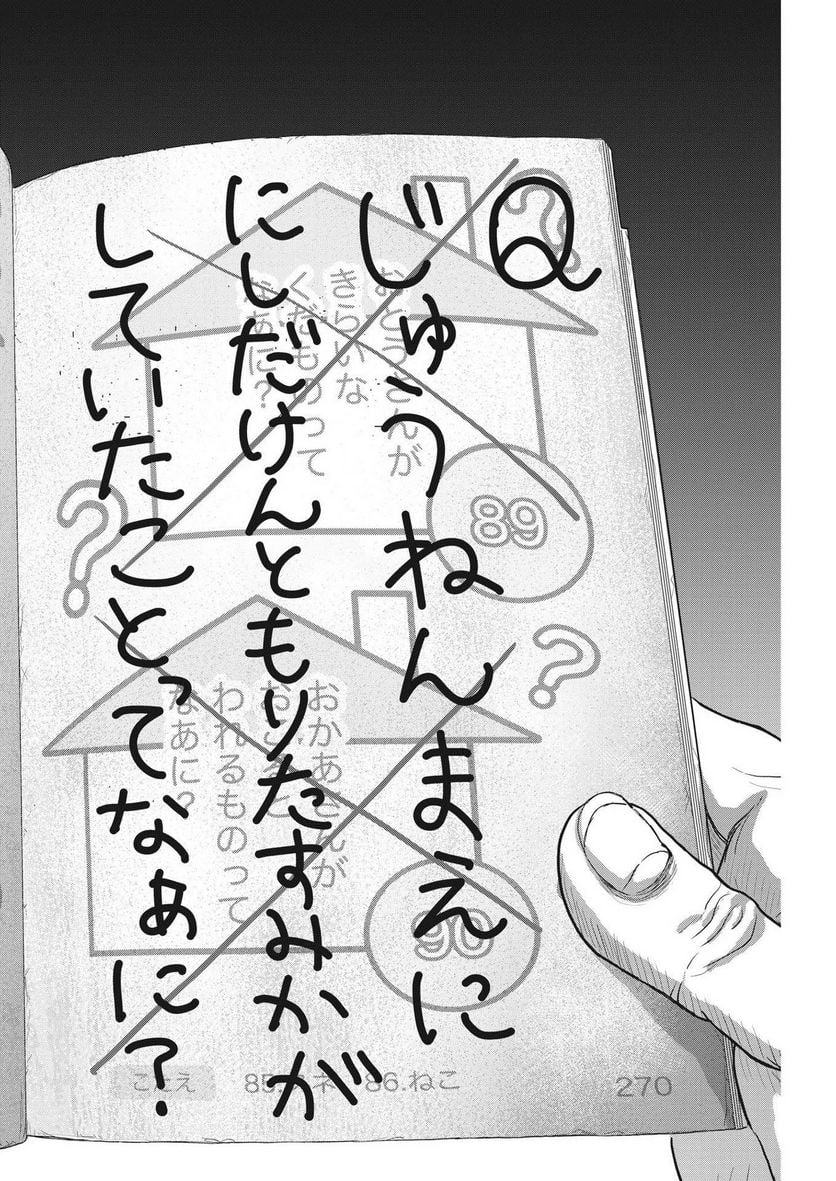 Q
じゅうねんまえに
にしだけんともりたすみかが
していたことってなぁに?
おとうさんが
きらいな
くだものって
なあに?
89
おかあさんが
われるものって
なあに?
90
こたえ
86.ねこ
270